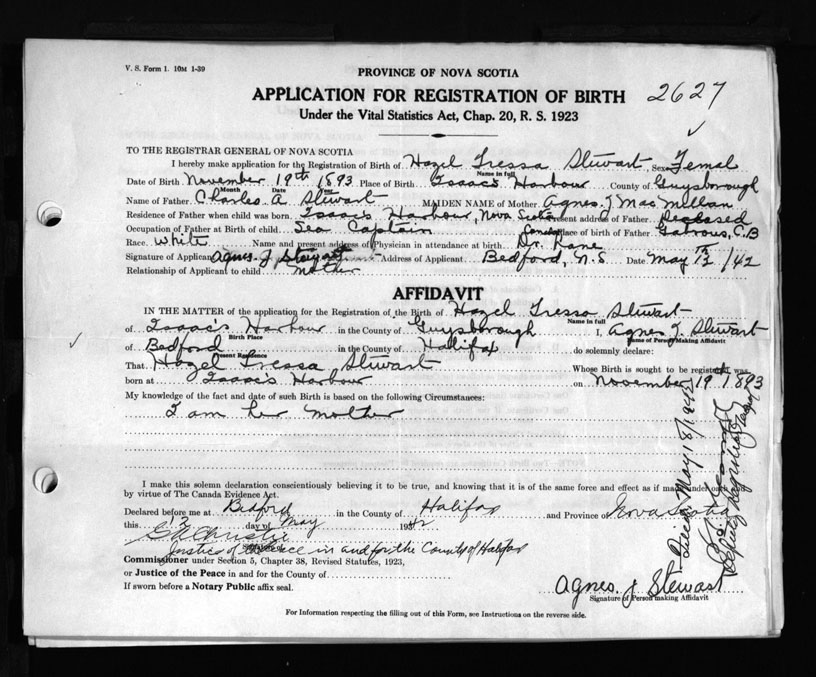 V. S. Form 1. 10M 1-39
PROVINCE OF NOVA SCOTIA
APPLICATION FOR REGISTRATION OF BIRTH 2627
Under the Vital Statistics Act, Chap. 20, R. S. 1923
TO THE REGISTRAR GENERAL OF NOVA SCOTIA
I hereby make application for the Registration of Birth of Hazel Tressa Stewart Sex Femal
Name in full
Date of Birth November 19th 1893 Place of Birth Isaac's Harbour County of Guysborough
Month Date Year
Name of Father Charles A Stewart MAIDEN NAME of Mother Agnes J MacMillan
Residence of Father when child was born Isaac's Harbour, Nova Scotia Present address of Father Deceased
Occupation of Father at Birth of child Sea Captain place of Birth of Father Gabrous, C.B
Race White Name and present address of Physician in attendance at birth Dr. Kane
Signature of Applicant Agnes. J Stewart Address of Applicant Bedford, N.S Date May 12th /42
Relationship of Applicant to child mother
AFFIDAVIT
IN THE MATTER of the application for the Registration of the Birth of Hazel Tressa Stewart
Name in full
of Isaac's Harbour in the County of Guysborough I, Agnes J. Stewart
Birth Place Name of Person Making Affidavit
of Bedford in the County of Halifax do solemnly declare:
Present Residence
That Hazel Tressa Stewart Whose Birth is sought to be registered was
born at Isaac's Harbour on November 19th 1893
My knowledge of the fact and date of such Birth is based on the following Circumstances:
I am her mother
I make this solemn declaration conscientiously believing it to be true, and knowing that it is of the same force and effect as if made under oath
by virtue of The Canada Evidence Act.
Declared before me at Bedford in the County of Halifax and Province of Nova Scotia
this 13 day of May 1942
Christie
Justice of Peace in and for the County of Halifax
Commissioner under Section 5, Chapter 38, Revised Statutes, 1923,
or Justice of the Peace in and for the County of
If sworn before a Notary Public affix seal.
Agnes. J Stewart
Signature of Person making Affidavit
For Information respecting the filling out of this Form, see Instructions on the reverse side.
May 18/1942
Deputy Registrar